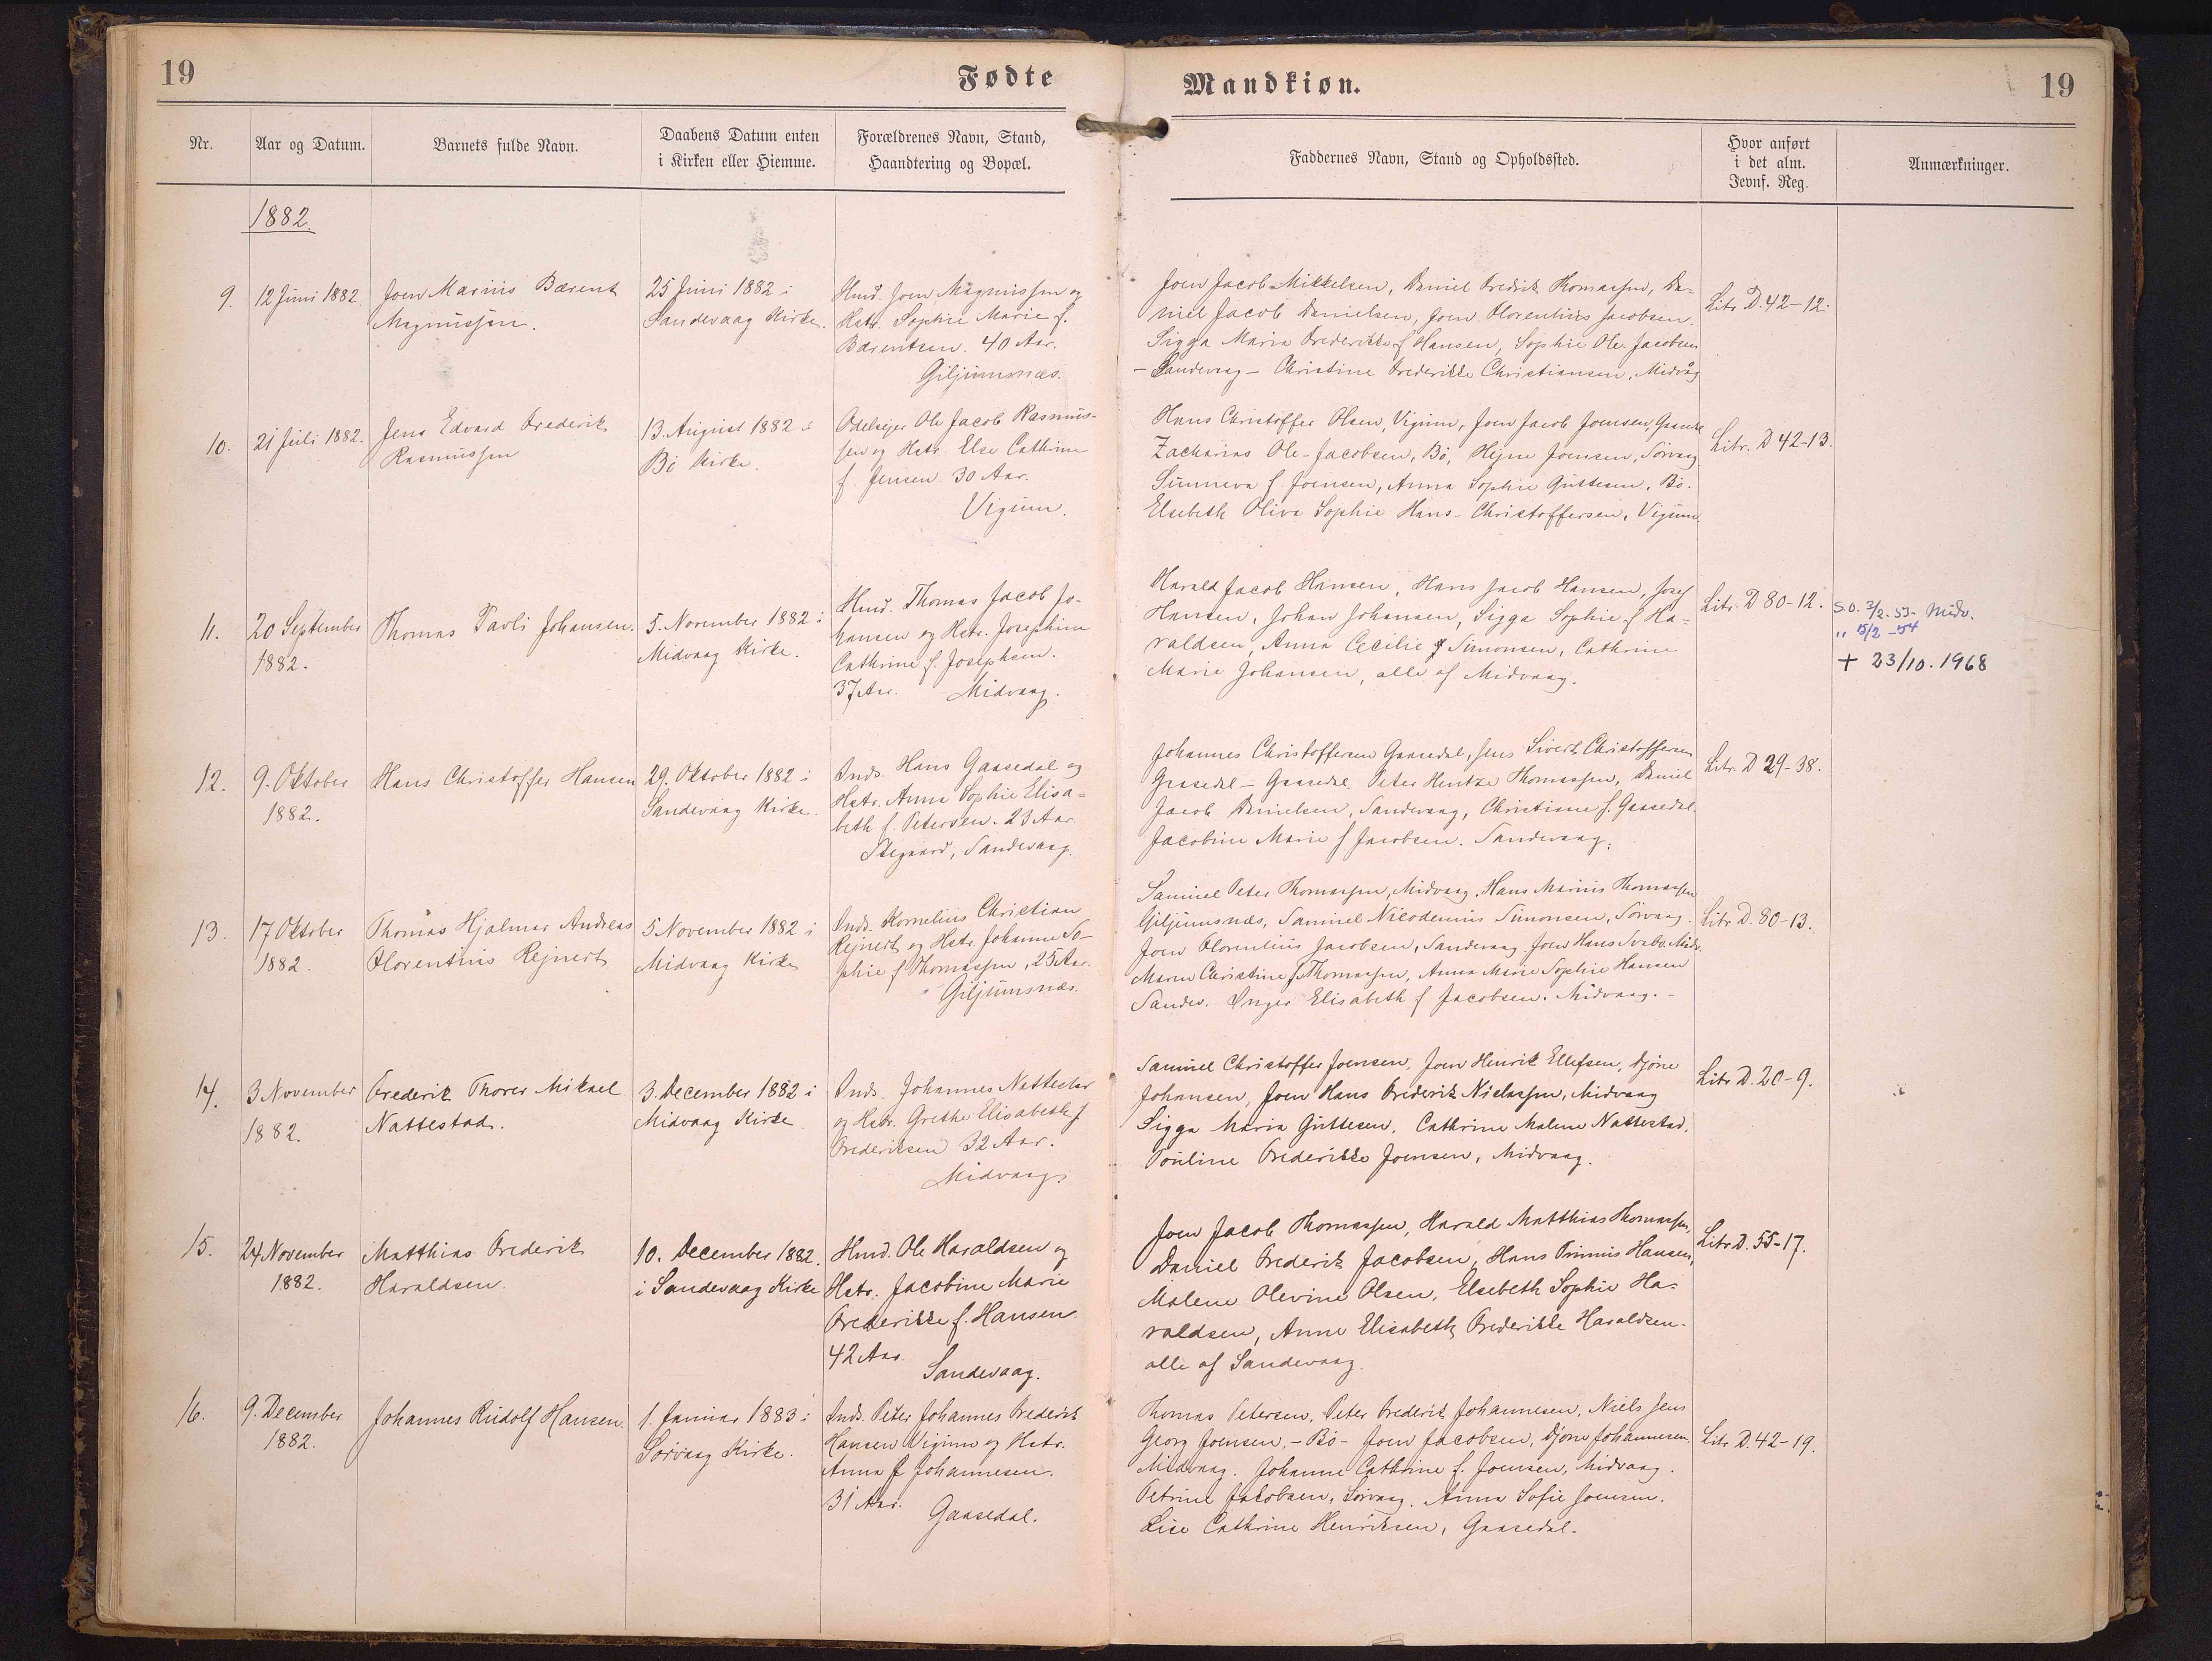 19
Fødte
Mandkiøn.
19
Nr.
Aar og Datum.
Barnets fulde Navn.
Daabens Datum enten
i Kirken eller Hiemme.
Forældrenes Navn, Stand,
Haandtering og Bopæl.
Faddernes Navn, Stand og Opholdssted.
Hvor anført
i det alm.
Jevnf. Reg.
Anmærkninger.
1882.
9.
12 Juni 1882.
Joen Marius Bærent
Magnussen.
25 Juni 1882 i
Sandevaag Kirke.
Hmd. Joen Magnussen og
Hstr. Sophie Marie f.
Bærentsen. 40 Aar.
Giljumsnæs.
Joen Jacob Mikkelsen, Daniel Fredrik Thomassen, Da-
niel Jacob Danielsen, Joen Florentius Jacobsen.
Sigga Maria Frederikke f Hansen, Sophie Ole-Jacobsen
- Sandevaag - Christine Frederikke Christiansen, Midvåg
Litr D. 42-12.
10.
21 Juli 1882.
Jens Edvard Frederik
Rasmussen
13. August 1882 i
Bö Kirke.
Odelsejer Ole Jacob Rasmus-
sen og Hstr. Else Cathrine
f. Jensen 30 Aar.
Vigum.
Hans Christoffer Olsen, Vigum, Joen Jacob Joensen, Gaased.
Zacharias Ole-Jacobsen, Bö, Hejne Joensen, Sörvaag.
Sunneva f Joensen, Anna Sophie Guttesen, Bö.
Elsebeth Oliva Sophie Hans-Christoffersen, Vigum.
Litr. D 42-13.
11.
20 September
1882.
Thomas Pavli Johansen.
5. November 1882 i
Midvaag Kirke.
Hmd. Thomas Jacob Jo-
hansen og Hstr. Josephine
Cathrine f. Josephsen.
37 Aar. Midvaag.
Harald Jacob Hansen, Hans Jacob Hansen, Josef
Hansen, Johan Johansen, Sigga Sophie f Ha-
raldsen, Anna Cecilie f Simonsen, Cathrine
Marie Johansen, alle af Midvaag.
Litr. D 80-12.
S.O. 3/2. 53- Midv.
" 15/2 -54
+ 23/10. 1968
12.
9. Oktober
1882.
Hans Christoffer Hansen
29. Oktober 1882 i
Sandevaag Kirke.
Inds. Hans Gaasedal og
Hstr. Anna Sophie Elisa-
beth f. Petersen. 23 Aar.
Stegaard, Sandevaag.
Johannes Christoffersen Gaasedal, Jens Sivert Christoffersen
Gaasedal - Gaasedal. Peter Hentze Thomassen, Daniel
Jacob Danielsen, Sandevaag, Christiane f. Gaasedal.
Jacobine Marie f Jacobsen. Sandevaag.
Litr. D 29-38.
13.
17 Oktober
1882.
Thomas Hjalmar Andreas
Florentius Rejnert
5 November 1882 i
Midvaag Kirke
Inds. Kornelius Christian
Rejnert og Hstr. Johanne So-
phie f Thomassen, 25 Aar.
Giljumsnæs.
Samuel Peter Thomassen, Midvaag. Hans Marius Thomassen
Giljumsnæs, Samuel Nicodemus Simonsen, Sörvaag.
Joen Florentius Jacobsen, Sandevaag. Joen Hans Svabo. Midv.
Maren Christine f. Thomassen, Anna Marie Sophie Hansen
Sandev. Inger Elisabeth f Jacobsen. Midvaag. -
Litr D. 80-13.
14.
3 November
1882.
Frederik Thorer Mikael
Nattestad.
3. December 1882 i
Midvaag Kirke
Inds. Johannes Nattestad
og Hstr. Grethe Elisabeth f
Frederiksen 32 Aar.
Midvaag.
Samuel Christoffer Joensen, Joen Henrik Ellefsen, Djóne
Johansen, Joen Hans Frederik Niclassen, Midvaag
Sigga Maria Guttesen. Cathrine Malene Nattestad.
Pouline Frederikke Joensen, Midvaag.
Litr D. 20-9.
15.
24 November
1882.
Matthias Frederik
Haraldsen.
10. December 1882.
i Sandevaag Kirke
Hmd. Ole Haraldsen og
Hstr. Jacobine Marie
Frederikke f. Hansen.
42 Aar.
Sandevaag.
Joen Jacob Thomassen, Harald Matthias Thomassen,
Daniel Frederik Jacobsen, Hans Hansen,
Malene Olevine Olsen, Elsebeth Sophie Ha-
raldsen, Anne Elisabeth Frederikke Haraldsen.
alle af Sandevaag.
Litr D. 55-17.
16.
9. December
1882.
Johannes Rudolf Hansen.
1. Januar 1883 i
Sörvaag Kirke.
Inds. Peter Johannes Frederik
Hansen Vigum og Hstr.
Anna f Johannesen.
31 Aar. Gaasedal.
Thomas Petersen, Peter Frederik Johannesen, Niels Jens
Georg Joensen, - Bö - Joen Jacobsen, Djone Johannesen,
Midvaag. Johanne Cathrine f. Joensen, Midvaag.
Petrine Jacobsen, Sörvaag. Anna Sofie Joensen.
Lise Cathrine Henriksen, Gaasedal.
Litr D. 42-19.